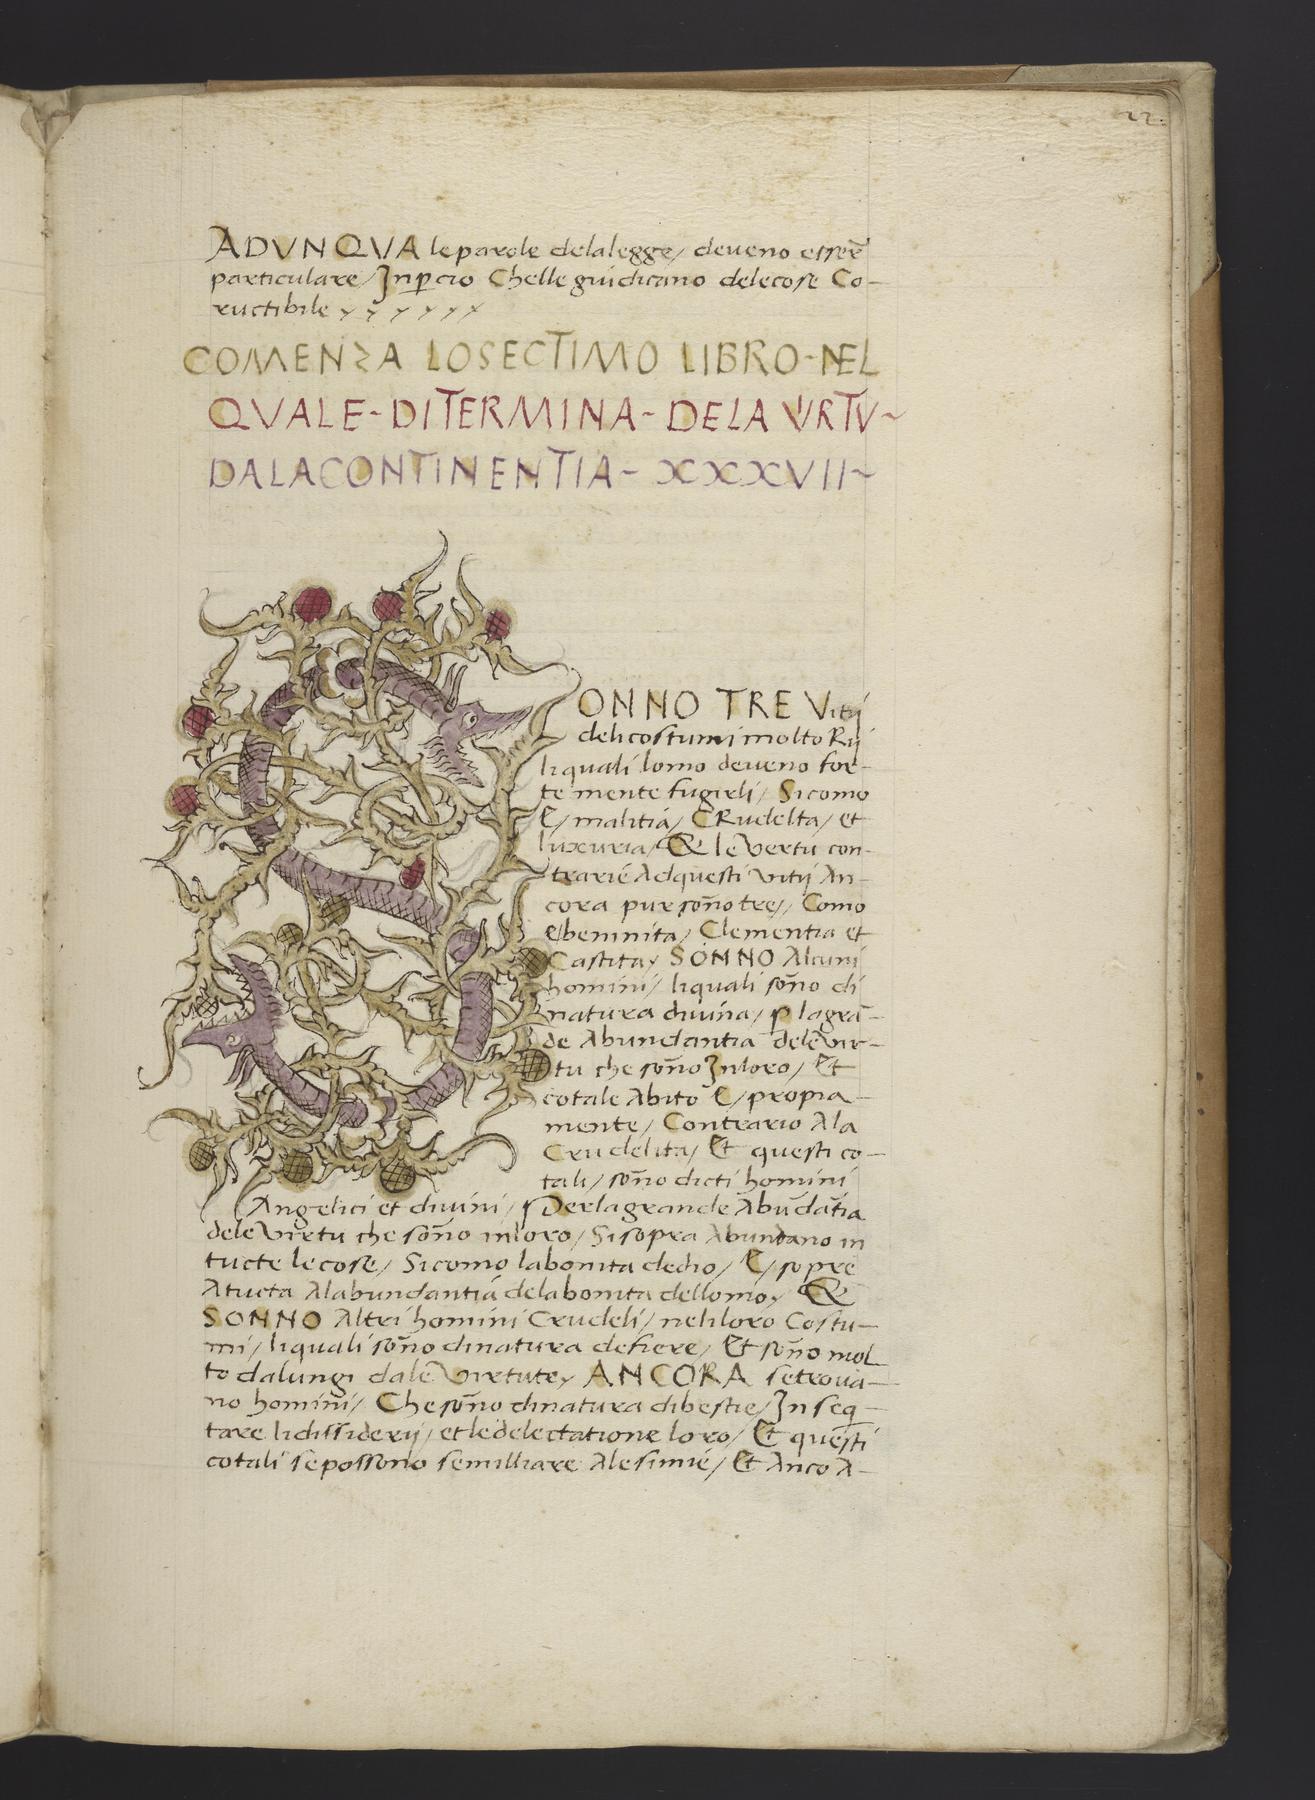 22.
ADVNQVA le parole dela legge/ deveno esser̄
particulare/ Inꝑcio Chelle giudicano delecose Co-
ructibile y y y y y y
COMENZA LO SECTIMO LIBRO-NEL
QVALE-DITERMINA-DELA VIRTV~
DALACONTINENTIA-XXXVII~
SONNO TRE Vitij
deli costumi molto Rij
li quali lomo deveno for-
te mente fugirli/ Sicomo
E/ malitia/ CRudelta/ et
luxuria/ & le Vertu con-
trarie Adquesti vitij An-
cora pur son̄o tre// Como
E/ beninita/ Clementia et
Castita/ SONNO Alcuni
homini/ liquali son̄o di
natura divina/ ꝑ la gra-
de Abundantia dele Vir-
tu che son̄o In loro/ Et
cotale Abito E/ propia-
mente/ Contrario Ala
Crudelita/ Et questi co-
tali/ son̄o dicti homini
Angelici et divini/ Per la grande Abūdātia
dele Virtu che son̄o in loro/ Si sopra Abundano in
tucte le cose/ Sicomo la bonita dedio/ E/ sopre
Atucta Alabundantia dela bonita dellomo/ &
SONNO Altri homini Crudeli/ neli loro Costu-
mi/ liquali son̄o dinatura defiere/ Et son̄o mol
to dalungi dale Virtute/ ANCORA se trova-
no homini/ Che son̄o dinatura di bestie/ In seq-
tare li dissiderij/ et le delectatione loro/ Et questi
cotali se possono semilliare Ale simie/ Et Anco A-